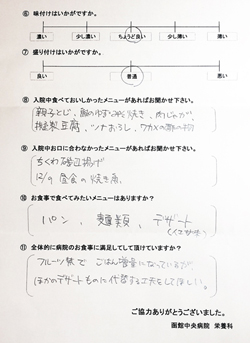 ⑥ 味付けはいかがですか。
濃い 少し濃い ちょうど良い 少し薄い 薄い
⑦ 盛り付けはいかがですか。
良い 普通 悪い
⑧ 入院中食べておいしかったメニューがあればお聞かせ下さい。
親子とじ、 焼き、肉じゃが、
豆腐、ツナおろし、ワカメの酢の物
⑨ 入院中お口に合わなかったメニューがあればお聞かせ下さい。
ちくわ磯辺揚げ
12/9 昼食の焼き魚
⑩ お食事で食べてみたいメニューはありますか?
パン、麺類、デザート
⑪ 全体的に病院のお食事に満足してして頂けていますか?
フルーツ禁で ごはん増量になっているが
ほかのデザートものに代替する工夫をしてほしい。
ご協力ありがとうございました。
函館中央病院 栄養科